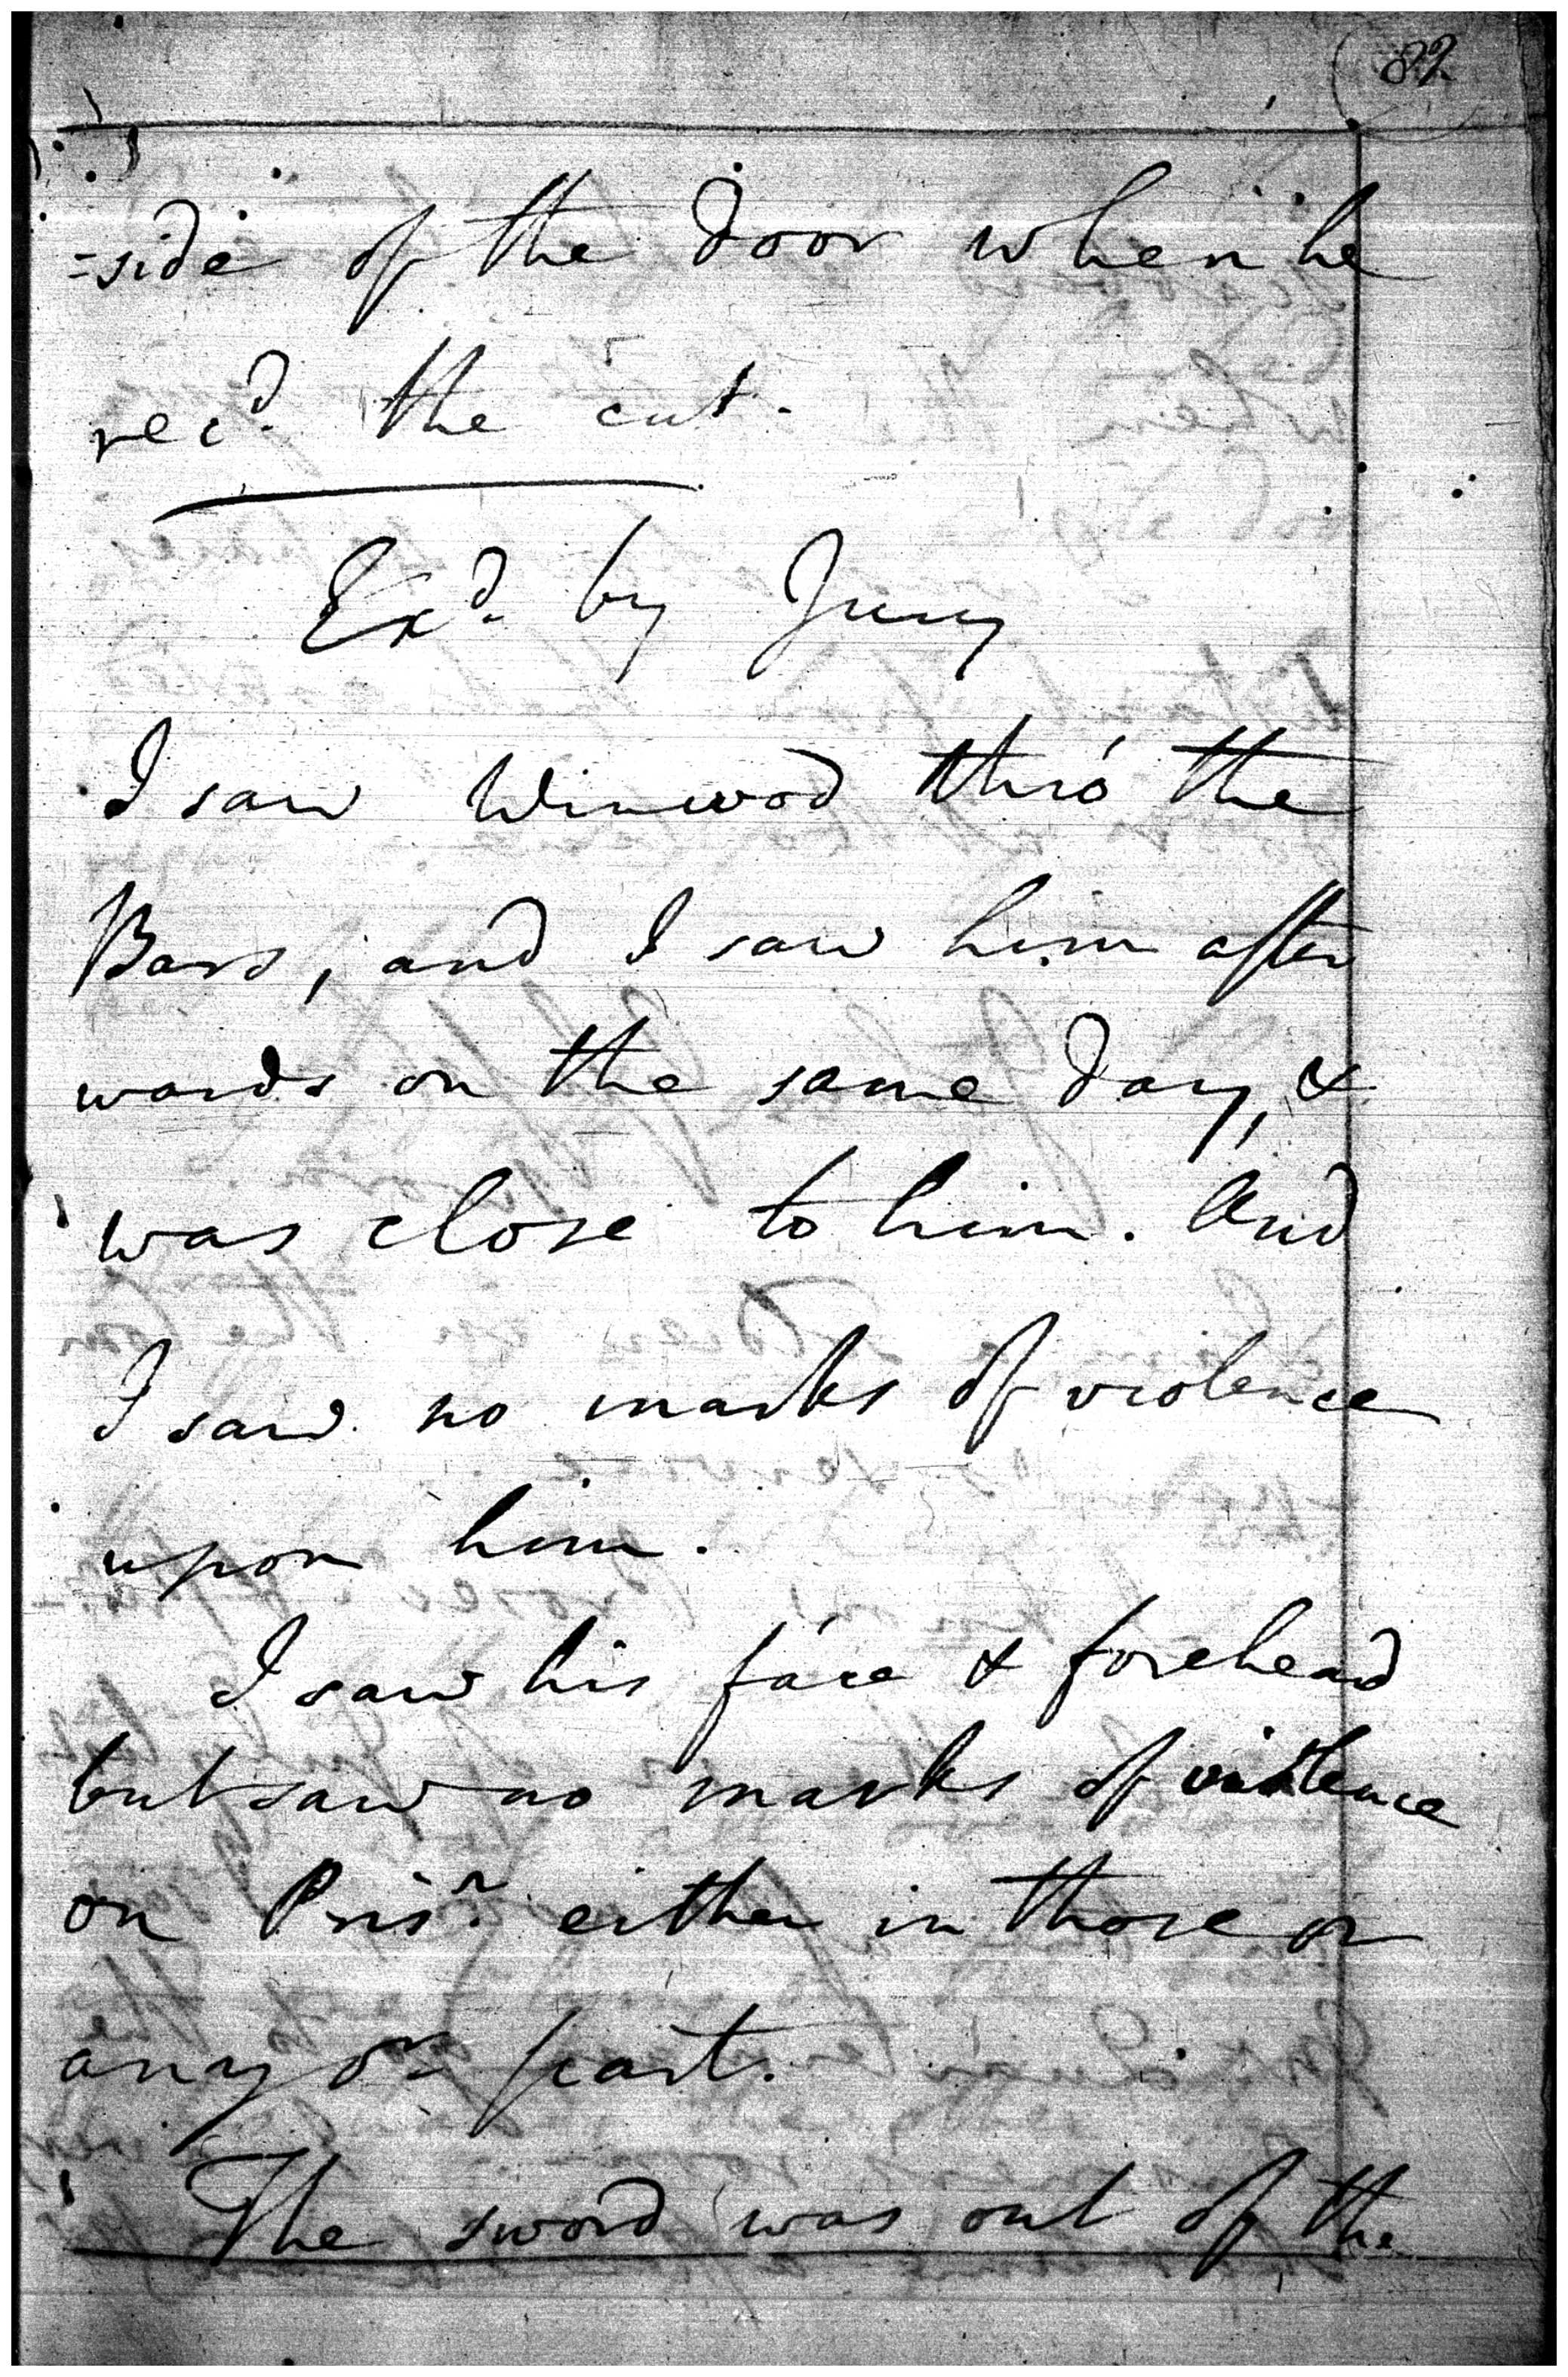 82
=side of the door when he
rec.d the cut.
Ex.d by Jury
I saw Winwod thro' the
Bars, and I saw him after
wards on the same day, &
was close to him. And
I saw no marks of violence
upon him.
I saw his face & forehead
but saw no marks of violence
on Pris.r either in those or
any or. part.
The sword was out of the